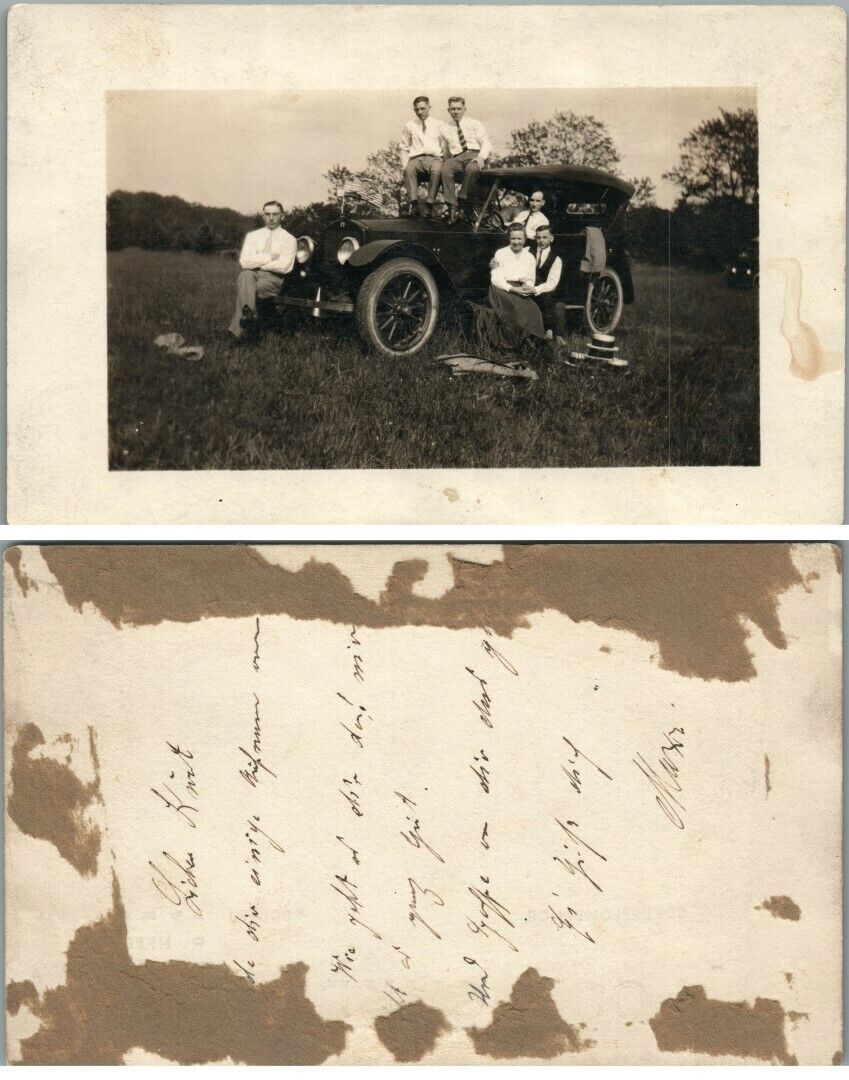 Lieber Kurt
de dir einige Aufnamen von
Wie geht es dir den mir
es ganz Gut.
Und Hoffe von dir das
Es Grüßt dich